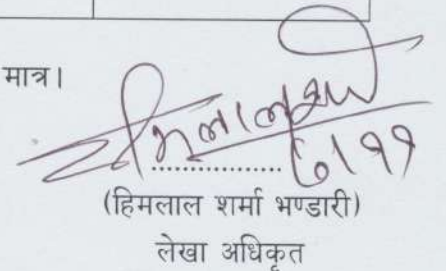 मात्र।
६।११
...............
(हिमलाल शर्मा भण्डारी)
लेखा अधिकृत